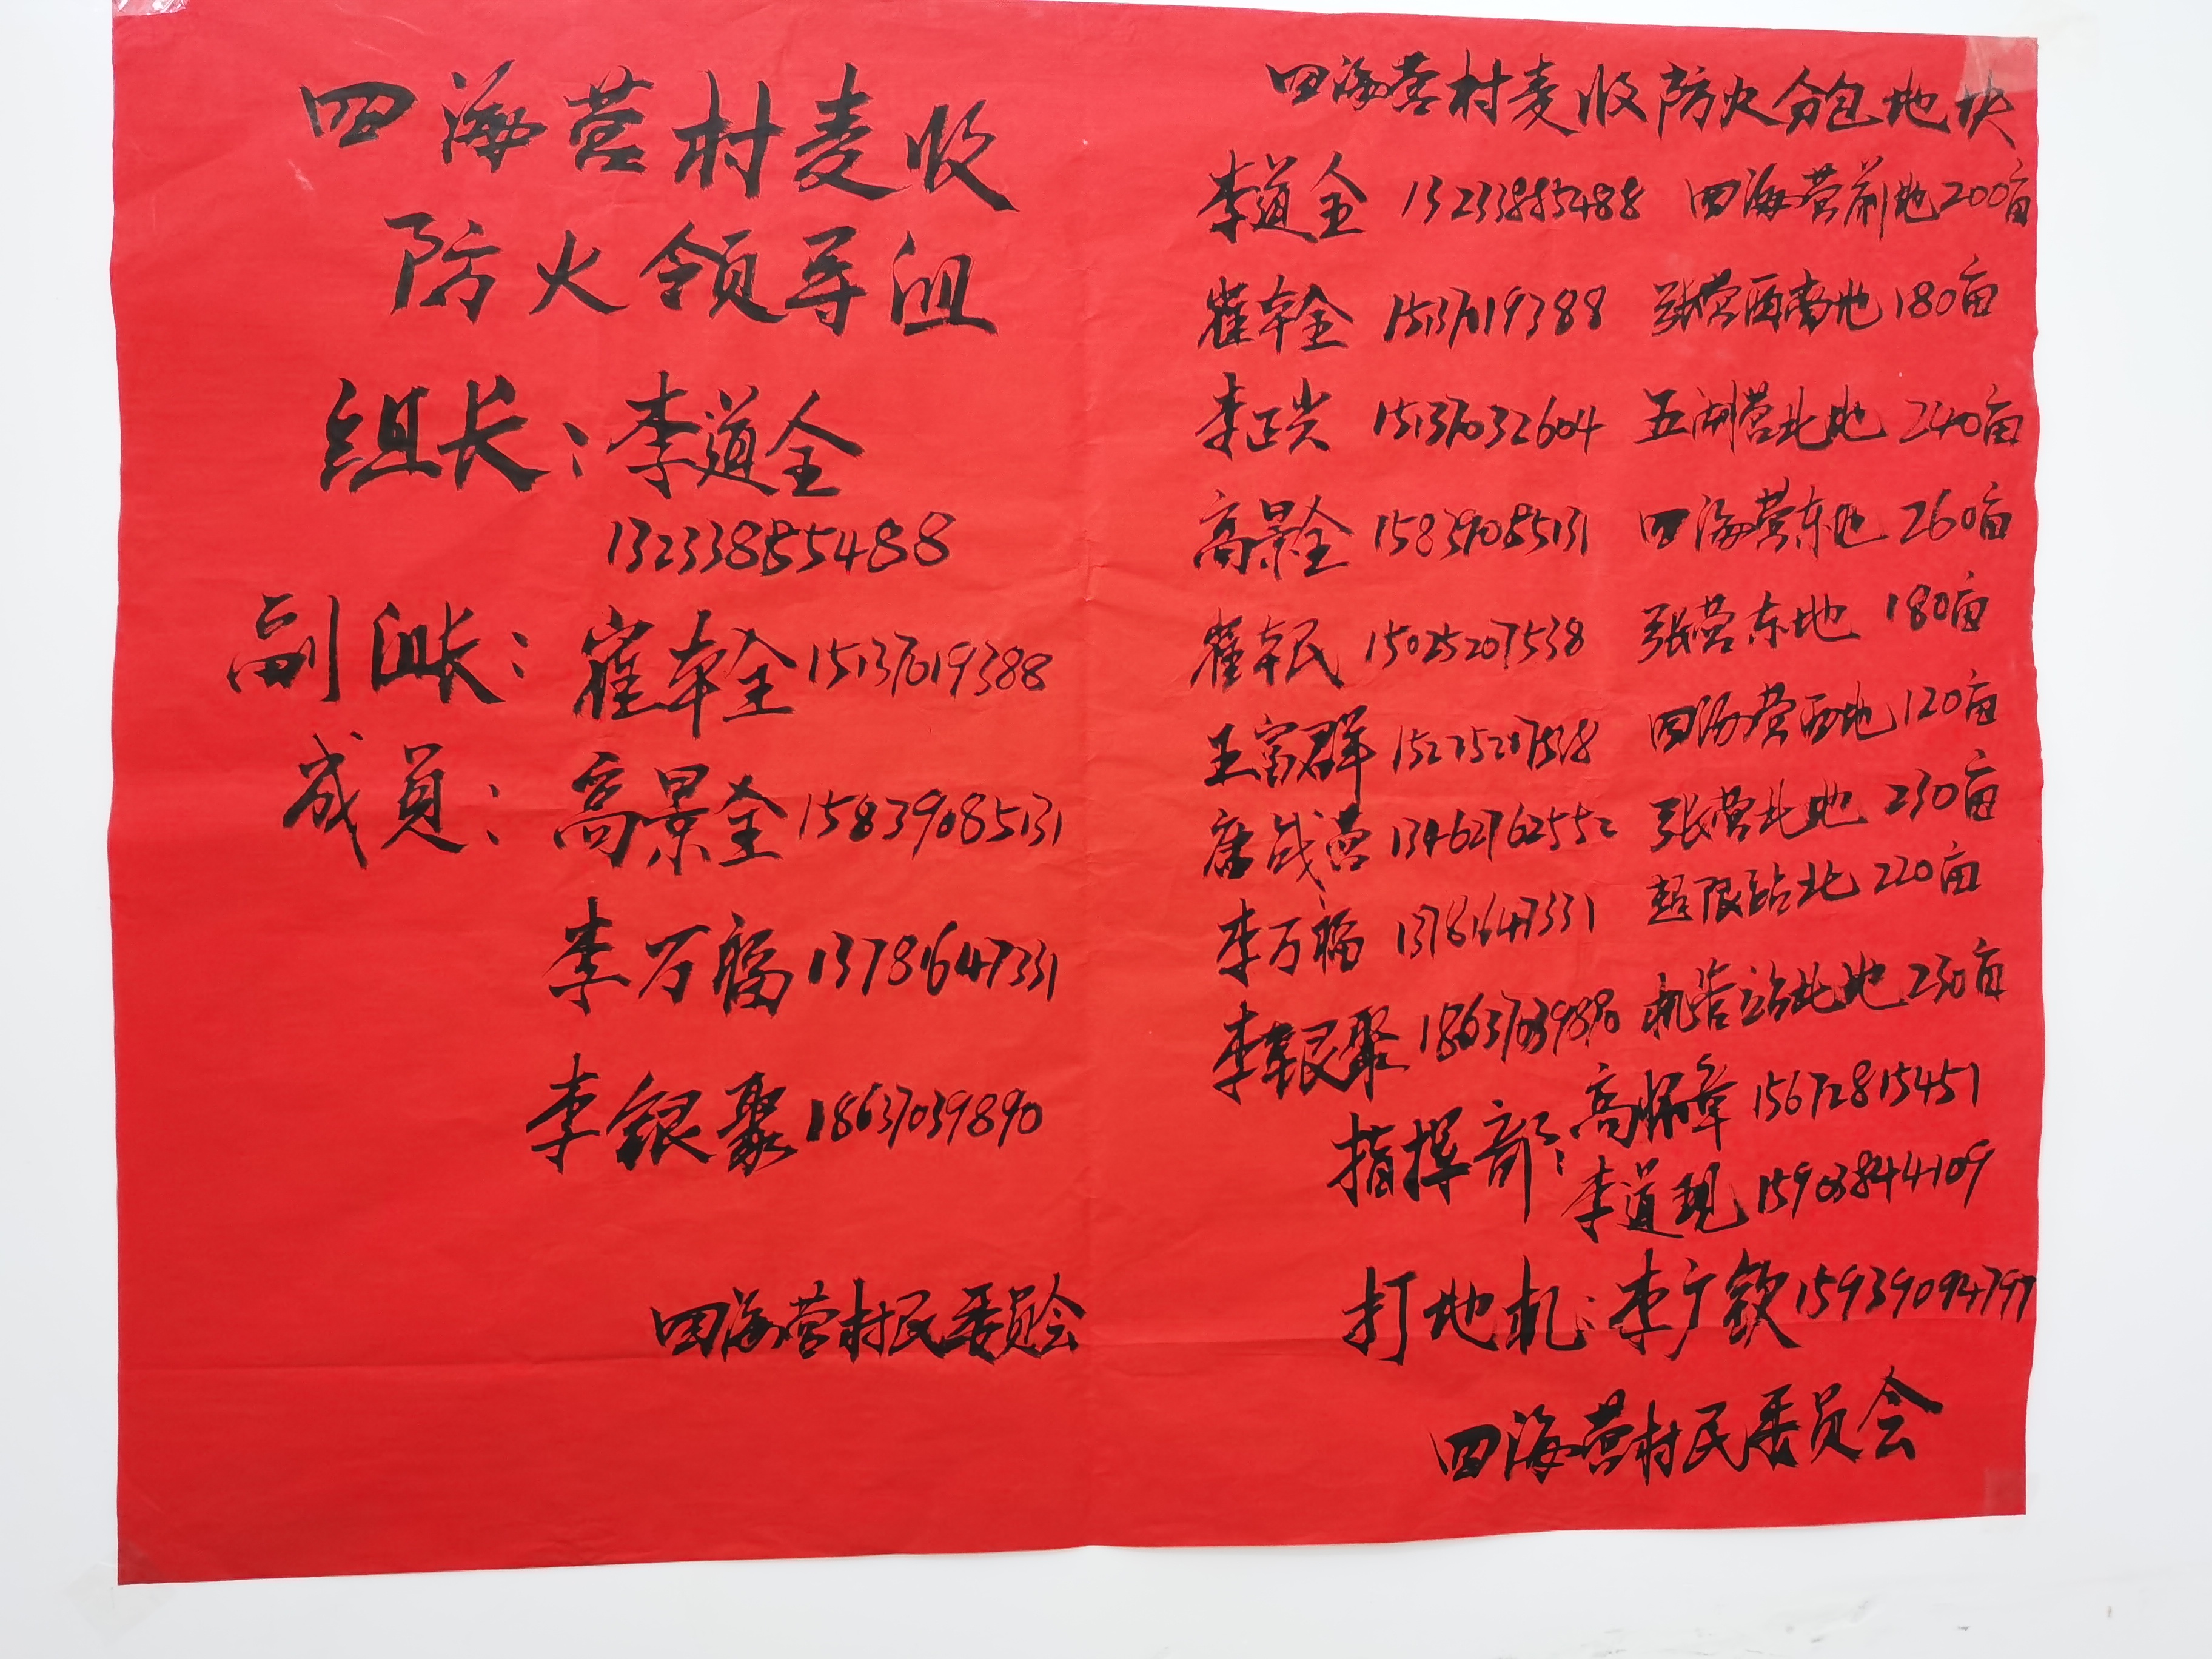 四海营村麦收
防火领导组
组长：李道全
13233885488
副组长：崔本全 15137019388
成员：高景全 15839085131
李万福 13781647331
李银聚 18637039890
四海营村民委员会
四海营村麦收防火分包地块
李道全 13233885488 四海营前地 200亩
崔本全 15137019388 张营西南地 180亩
李正光 15137032604 五湖营北地 240亩
高景全 15839085131 四海营东地 260亩
崔本民 15025207538 张营东地 180亩
王富群 四海营西地 120亩
唐战营 13462762552 张营北地 230亩
李万福 13781647331 超限站北 220亩
李银聚 18637039890 机营站北地 230亩
指挥部：高怀章 15672815457
李道现 15903844109
打地机：李广钦 15939094797
四海营村民委员会